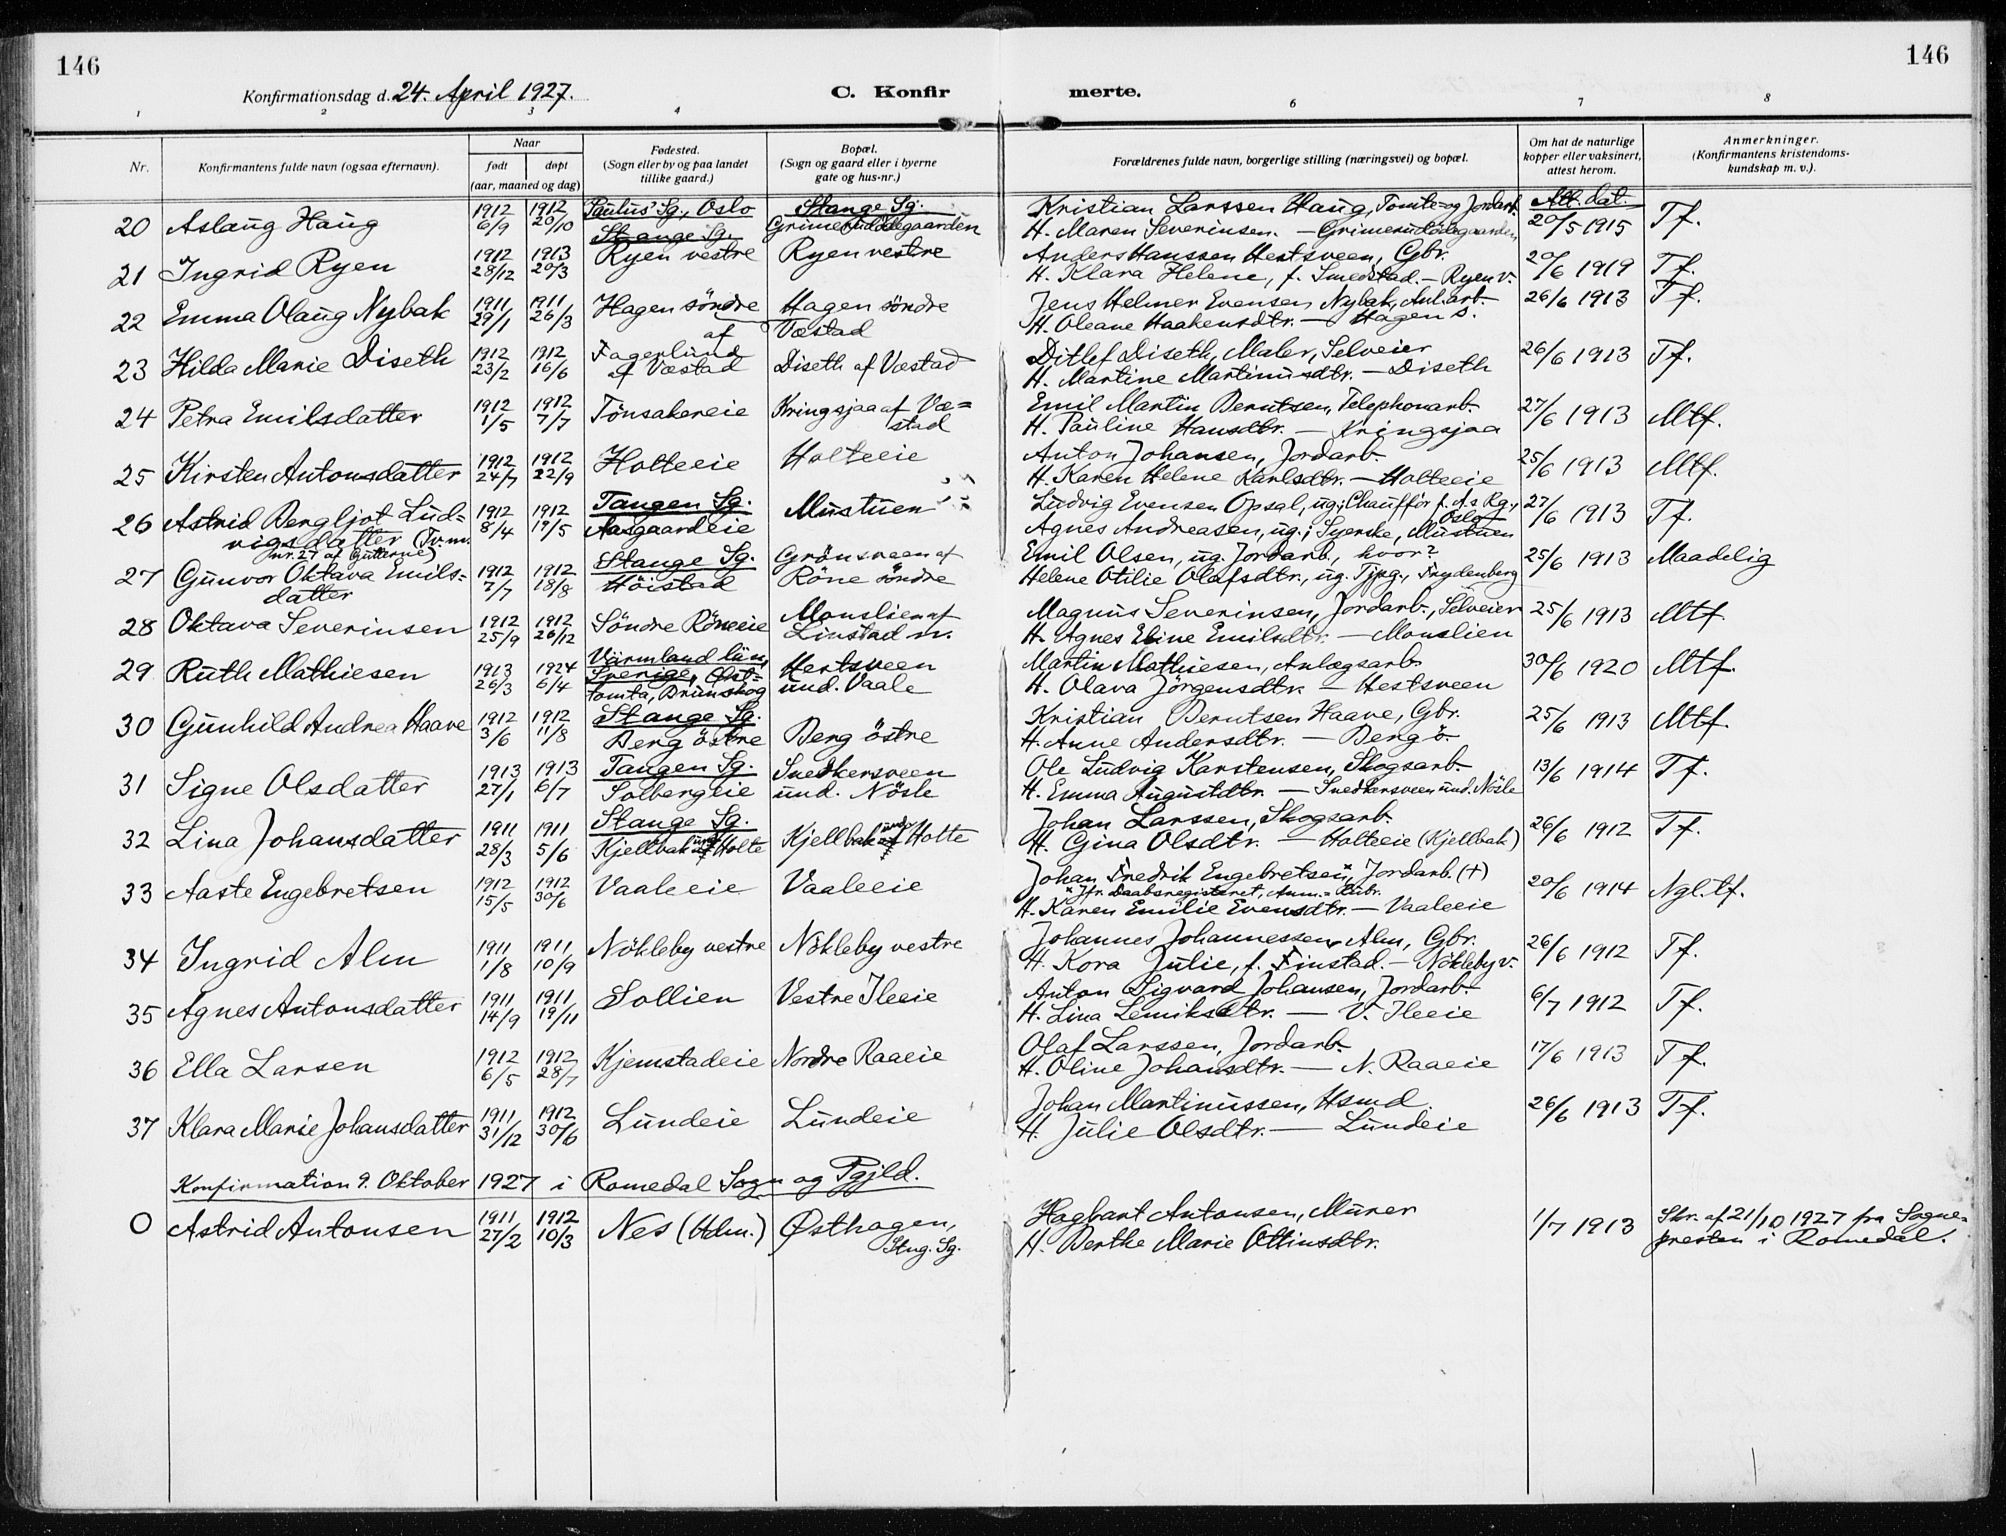 146
146
Konfirmationsdag d. 24. April 1927.
C. Konfirmerte.
1 2 3 4 6 7 8
Nr.
Konfirmantens fulde navn (ogsaa efternavn).
Naar
født
døpt
(aar, maaned og dag)
Fødested.
(Sogn eller by og paa landet
tillike gaard.)
Bopæl.
(Sogn og gaard eller i byerne
gate og hus-nr.)
Forældrenes fulde navn, borgerlige stilling (næringsvei) og bopæl.
Om hat de naturlige
kopper eller vaksinert,
attest herom.
Anmerkninger.
(Konfirmantens kristendoms-
kundskap m. v.).
20 Aslaug Haug 1912 6/9 1912 20/10 Paulus' Sg., Oslo Stange Sg. Grimerudödegaarden
Kristian Larssen Haug, Tomte- og Jordarb. Att. dat.
H. Maren Severinsen. — Grimerudödegaarden 20/5 1915 Tf.
21 Ingrid Ryen 1912 28/12 1913 20/3 Stange Sg. Ryen vestre Ryen vestre
Anders Hanssen Hestsveen, Gbr.
H. Klara Helene, f. Smedstad. — Ryen v. 20/6 1919 Tf.
22 Emma Olaug Nybak 1911 29/1 1911 26/3 Hagen söndre Hagen söndre af Væstad
Jens Helmer Evensen Nybak, Anl.arb.
H. Oleane Haakensdtr. — Hagen s. 26/6 1913 Tf.
23 Hilda Marie Diseth 1912 23/2 1912 16/6 Fagerlund af Væstad Diseth af Væstad
Ditlef Diseth, Maler, Selveier
H. Martine Martinusdtr. — Diseth 26/6 1913 Tf.
24 Petra Emilsdatter 1912 1/5 1912 7/7 Tönsakereie Kringsjaa af Væ=stad
Emil Martin Berntsen, Telephonarb.
H. Pauline Hansdtr. — Kringsjaa 27/6 1913 Mtf.
25 Kirsten Antonsdatter 1912 24/7 1912 22/9 Holteeie Holteeie
Anton Johansen, Jordarb.
H. Karen Helene Karlsdtr. — Holteeie 25/6 1913 Mtf.
26 Astrid Bergljot Lud=
vigsdatter (Tvm.
nr. 27 af Gutterne) 1912 8/4 1912 19/5 Tangen Sg. Aasgaardeie Mustuen
Ludvig Evensen Opsal, ug.; Chaufför f. A.s Rg., Oslo
Agnes Andreasen, ug.; Syerske, Mustuen 27/6 1913 Tf.
27 Gunvor Oktava Emils=
datter 1912 2/7 1912 18/8 Stange Sg. Höistad Grönsveen af Röne söndre
Emil Olsen, ug. Jordarb., hvor?
Helene Otilie Olafsdtr., ug. Tjpg., Frydenberg 25/6 1913 Maadelig
28 Oktava Severinsen 1912 25/9 1912 26/12 Söndre Röneeie Monslien af Linstad n.
Magnus Severinsen, Jordarb., Selveier
H. Agnes Eline Emilsdtr. — Monslien 25/6 1913 Mtf
29 Ruth Mathiesen 1913 26/3 1924 6/4 Värmland län, Sverige, Öst-tomta, Brunskog Hestsveen und. Vaale
Martin Mathiesen, Anlægsarb.
H. Olava Jörgensdtr. — Hestsveen 30/6 1920 Mtf.
30 Gunhild Andrea Haave 1912 3/6 1912 11/8 Stange Sg. Berg östre Berg östre
Kristian Berntsen Haave, Gbr.
H. Anne Andersdtr. — Berg ö. 25/6 1913 Mtf.
31 Signe Olsdatter 1913 27/1 1913 6/7 Tangen Sg. Solbergeie Snedkersveen und. Nösle
Ole Ludvig Karstensen, Skogsarb.
H. Emma Augustdtr. — Snedkersveen und. Nösle 13/6 1914 Tf.
32 Lina Johansdatter 1911 28/3 1911 5/6 Stange Sg. Kjellbak und. Holte Kjellbak und. Holte
Johan Larssen, Skogsarb.
H. Gina Olsdtr. — Holteeie (Kjellbak) 26/6 1912 Tf.
33 Aaste Engebretsen 1912 15/5 1912 30/6 Vaaleeie Vaaleeie
Johan Fredrik Engebretsen,ˣ Jordarb. (+)
ˣ Jfr. Daabsregisteret, Anm.= Rubr.
H. Karen Emilie Evensdtr. — Vaaleeie 20/6 1914 Ngl.tf.
34 Ingrid Alm 1911 1/8 1911 10/9 Nökleby vestre Nökleby vestre
Johannes Johannessen Alm, Gbr.
H. Kora Julie, f. Finstad. — Nökleby v. 26/6 1912 Tf.
35 Agnes Antonsdatter 1911 14/9 1911 19/11 Sollien Vestre Ileeie
Anton Sigvard Johansen, Jordarb.
H. Lina Lemiksdtr. — V. Ileeie 6/7 1912 Tf.
36 Ella Larsen 1912 6/5 1912 28/7 Kjemstadeie Nordre Raaeie
Olaf Larssen, Jordarb.
H. Oline Johansdtr. — N. Raaeie 17/6 1913 Tf.
37 Klara Marie Johansdatter 1911 31/12 1912 30/6 Lundeie Lundeie
Johan Martinussen, Hsmd.
H. Julie Olsdtr. — Lundeie 26/6 1913 Tf.
Konfirmation 9. Oktober 1927 i Romedal Sogn og Pgjld.
O Astrid Antonsen 1911 27/2 1912 10/3 Nes (Hdm.) Østhagen, Stng. Sg.
Hagbart Antonsen, Murer
H. Berthe Marie Ottinsdtr. 1/7 1913 Skr. af 21/10 1927 fra Sogne=
presten i Romedal.